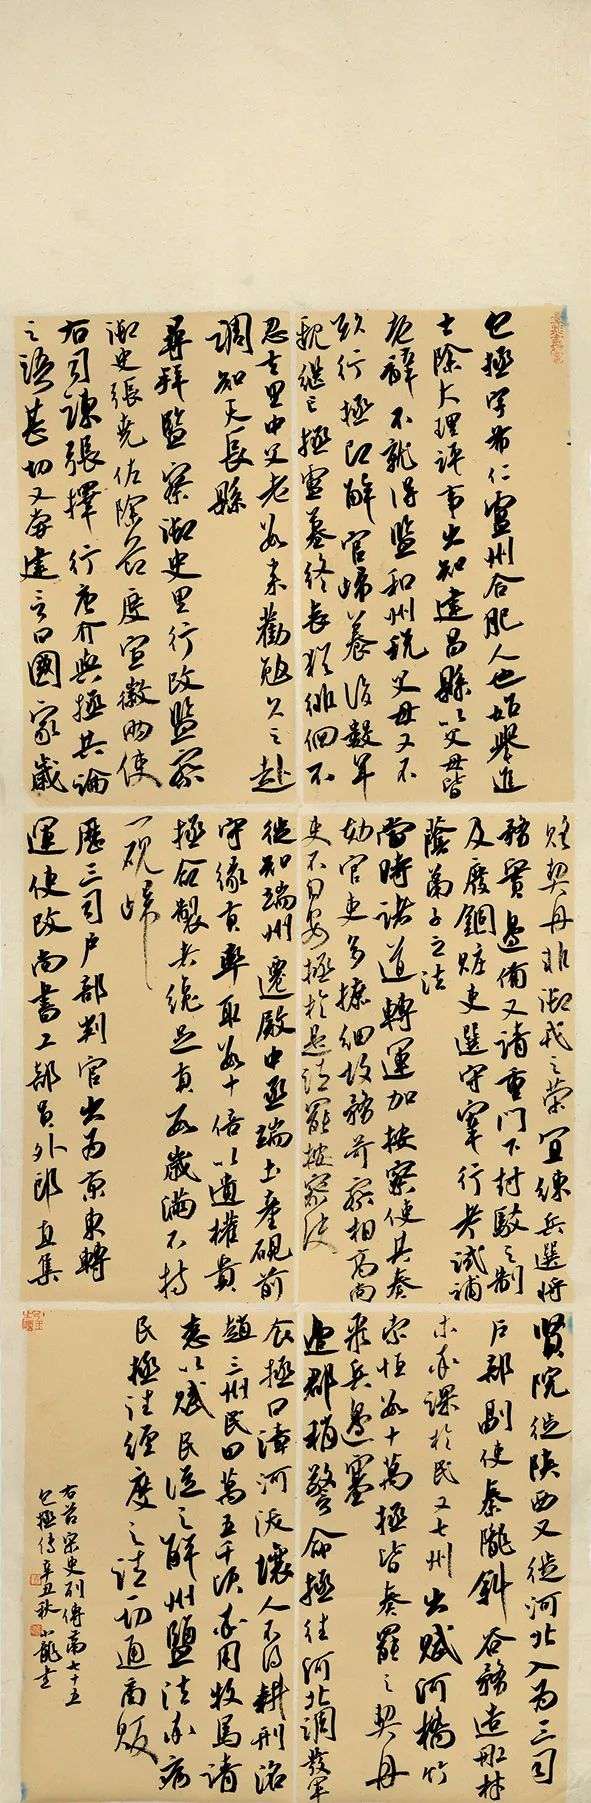 包拯字希仁廬州合肥人也始舉進
士除大理評事出知建昌縣以父母皆
老辭不就得監和州稅父母又不
欲行拯即解官歸養後數年
親繼亡拯廬墓終喪猶徘徊不
忍去里中父老數來勸勉久之赴
調知天長縣
尋拜監察御史里行改監察
御史張堯佐除節度宣徽兩使
右司諫張擇行唐介與拯共論
之語甚切又嘗建言曰國家歲
賂契丹非御戎之策宜練兵選將
務實邊備又請重門下封駁之制
及廢錮贓吏選守宰行考試補
蔭弟子之法
當時諸道轉運加按察使其奏
劾官吏多摭細故務苛察相高尚
吏不自安拯於是請罷按察使
徙知端州遷殿中丞端土產硯前
守緣貢率取數十倍以遺權貴
拯命製者纔足貢數歲滿不持
一硯歸
歷三司戶部判官出為京東轉
運使改尚書工部員外郎直集
賢院徙陝西又徙河北入為三司
戶部副使秦隴斜谷務造船材
木率課於民又七州出賦河橋竹
索恆數十萬拯皆奏罷之契丹
聚兵近塞
邊郡稍警命拯往河北調發軍
食拯曰漳河沃壤人不得耕邢洺
趙三州民田萬五千頃率用牧馬請
悉以賦民從之解州鹽法率病
民拯往經度之請一切通商販
右節宋史列傳第七十五
包拯傳辛丑秋小龍書